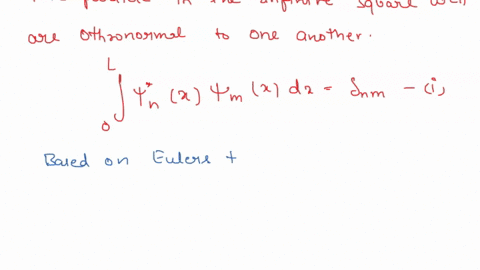 in the infinite square well
are othronormal to one another.
∫₀ᴸ ψₙ* (x) ψₘ (x) dx = δₙₘ - (i)
Based on Eulers +